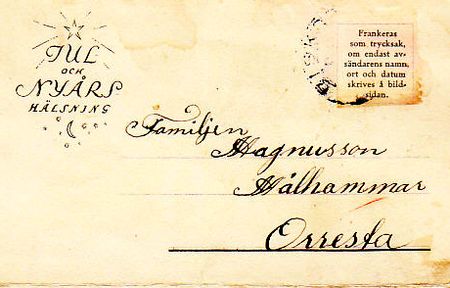 JUL
OCH
NYÅRS
HÄLSNING
Frankeras
som trycksak,
om endast av-
sändarens namn,
ort och datum
skrives å bild-
sidan.
Familjen
Magnusson
Målhammar
Orresta